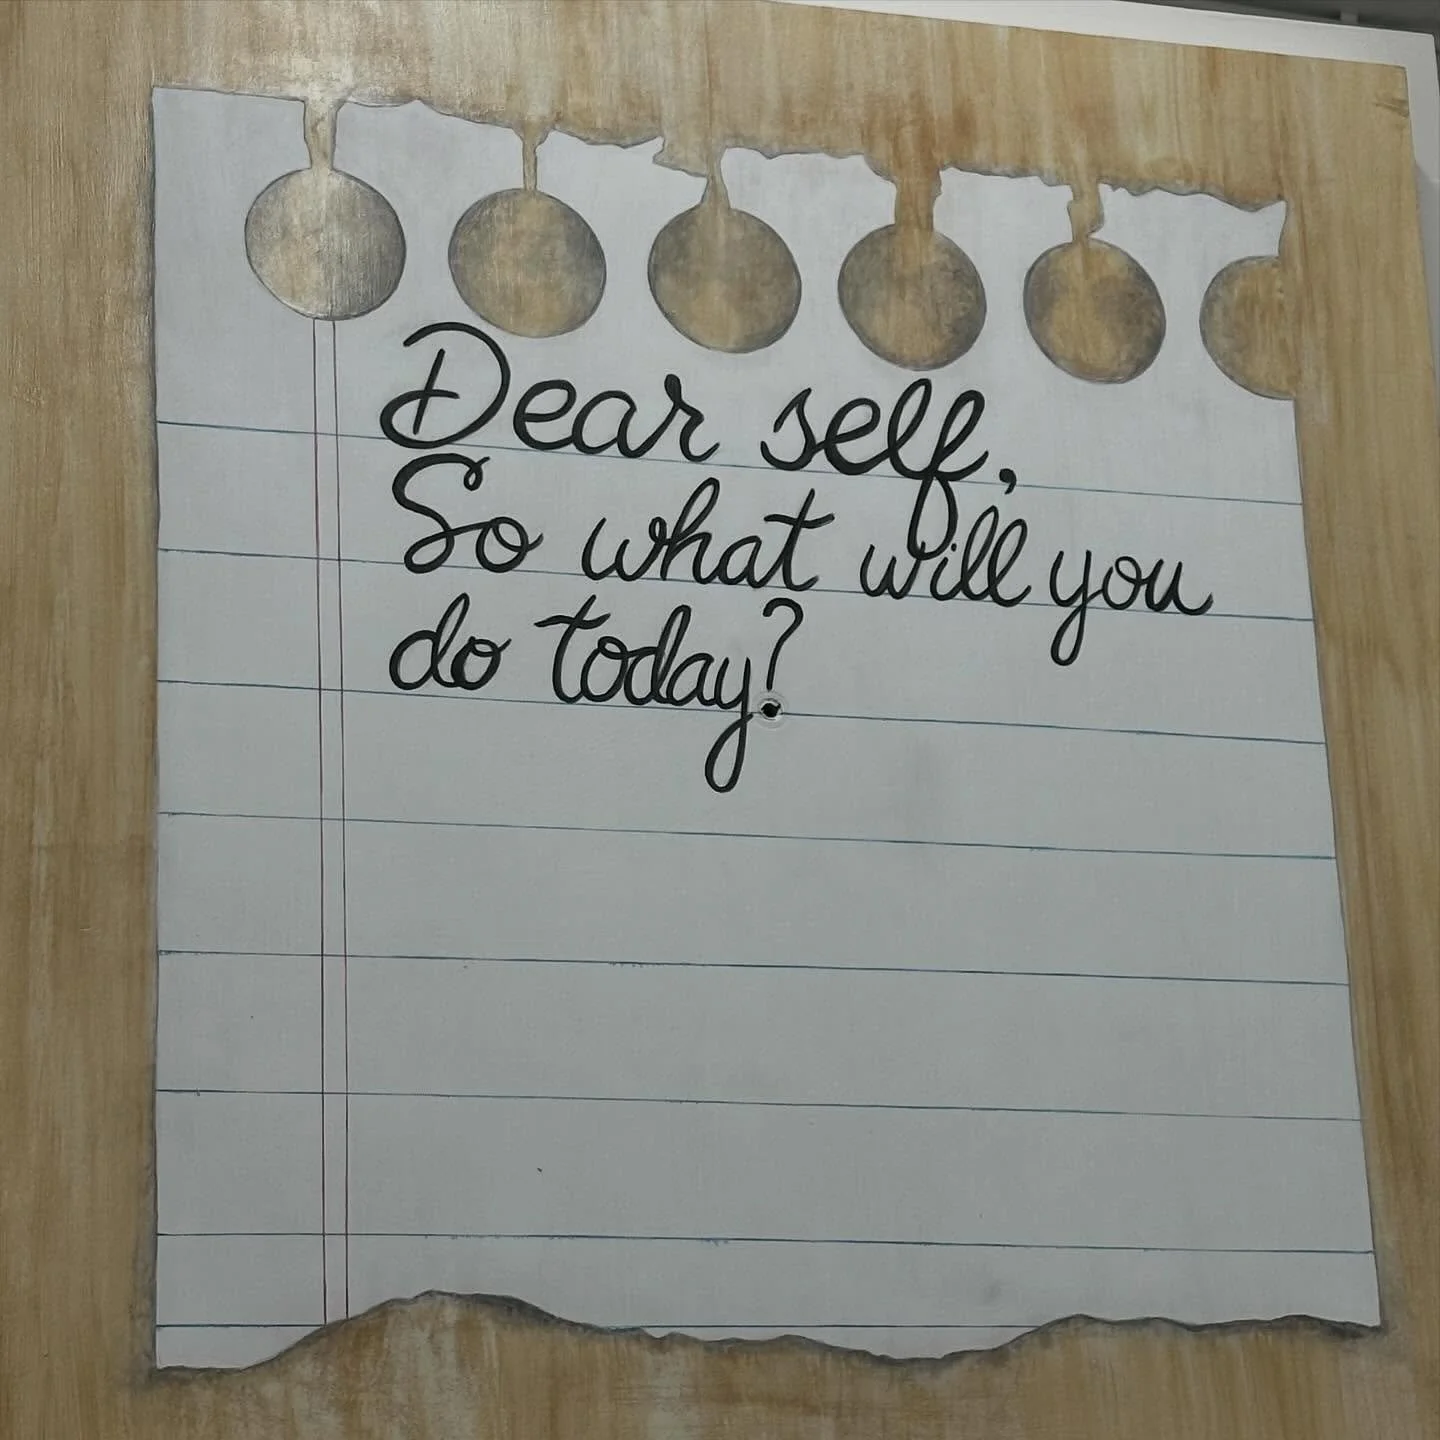 Dear self,
So what will you
do today?